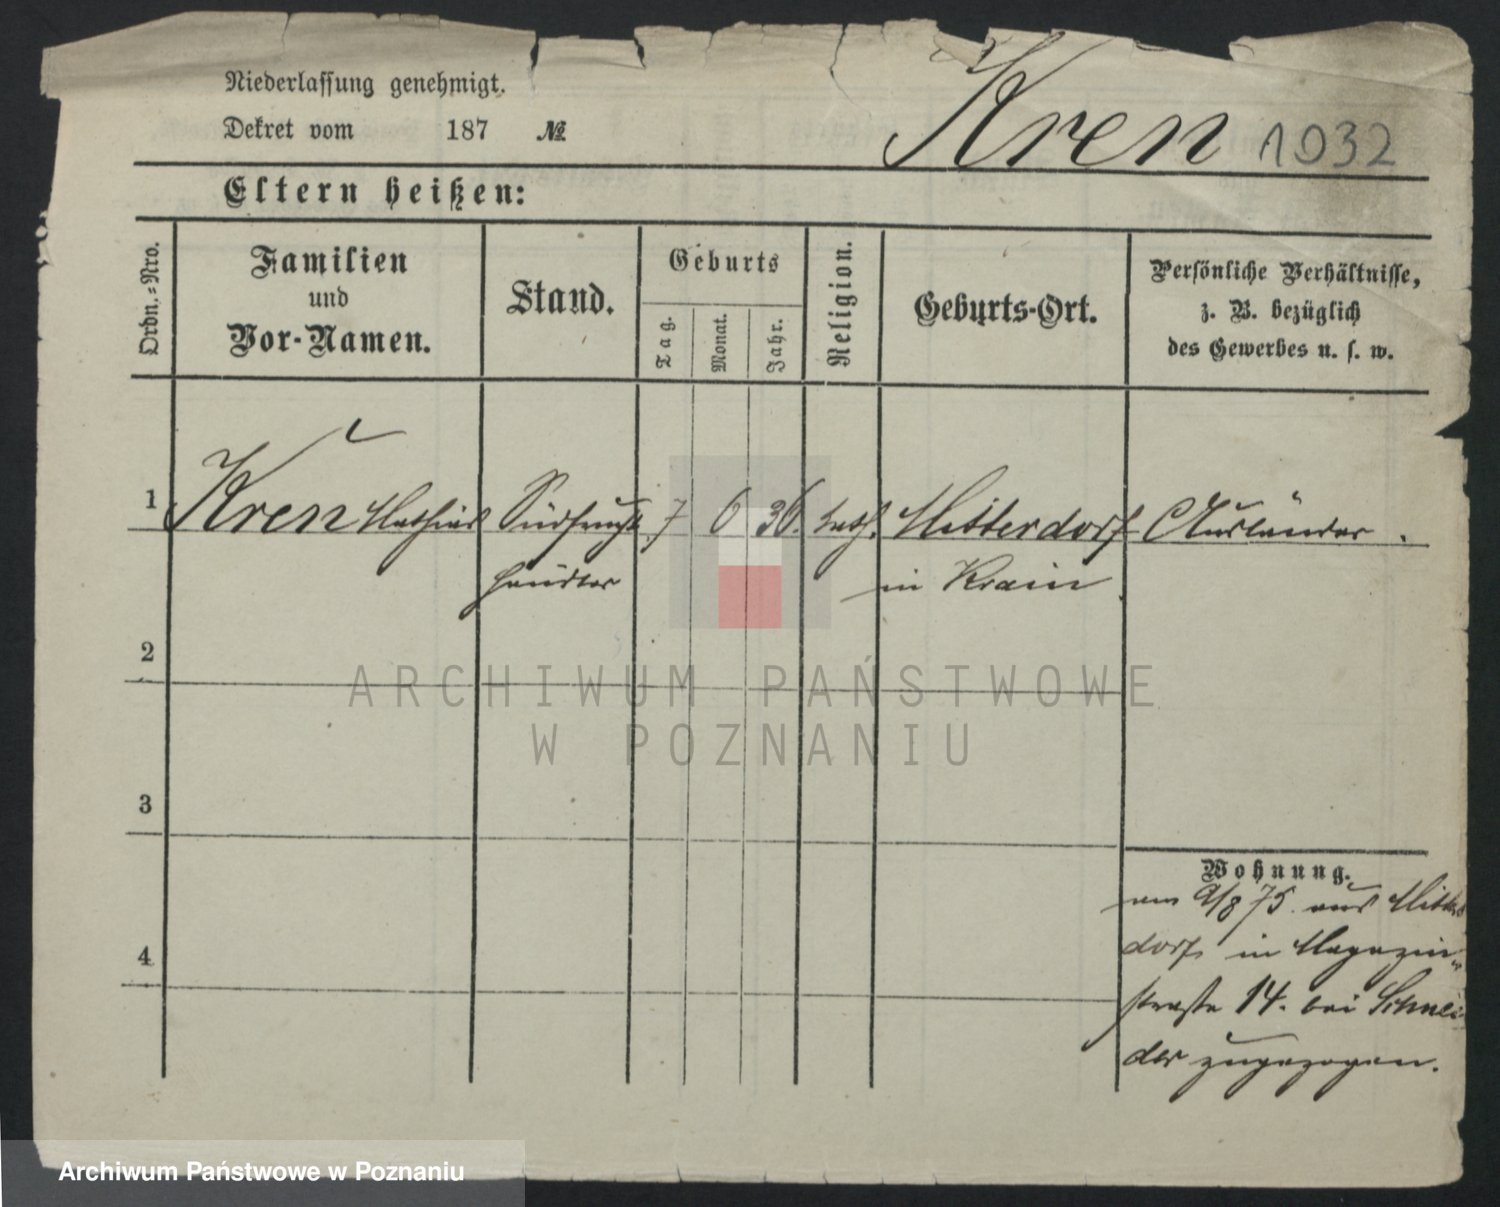 Niederlassung genehmigt.
Dekret vom 187 №
Kren 1032
Eltern heißen:
Ordn.-Nro.
Familien und Vor-Namen.
Stand.
Geburts
Tag.
Monat.
Jahr.
Religion.
Geburts-Ort.
Persönliche Verhältnisse,
z. B. bezüglich
des Gewerbes u. s. w.
1 Kren Mathias Südfrucht 7 6 36. kath. Mitterdorf Ausländer.
händler in Krain
2
3
4
Wohnung.
am 9/8 75. aus Mitter
dorf in Magazin-
straße 14. bei Schnei
der zugezogen.
ARCHIWUM PAŃSTWOWE
W POZNANIU
Archiwum Państwowe w Poznaniu